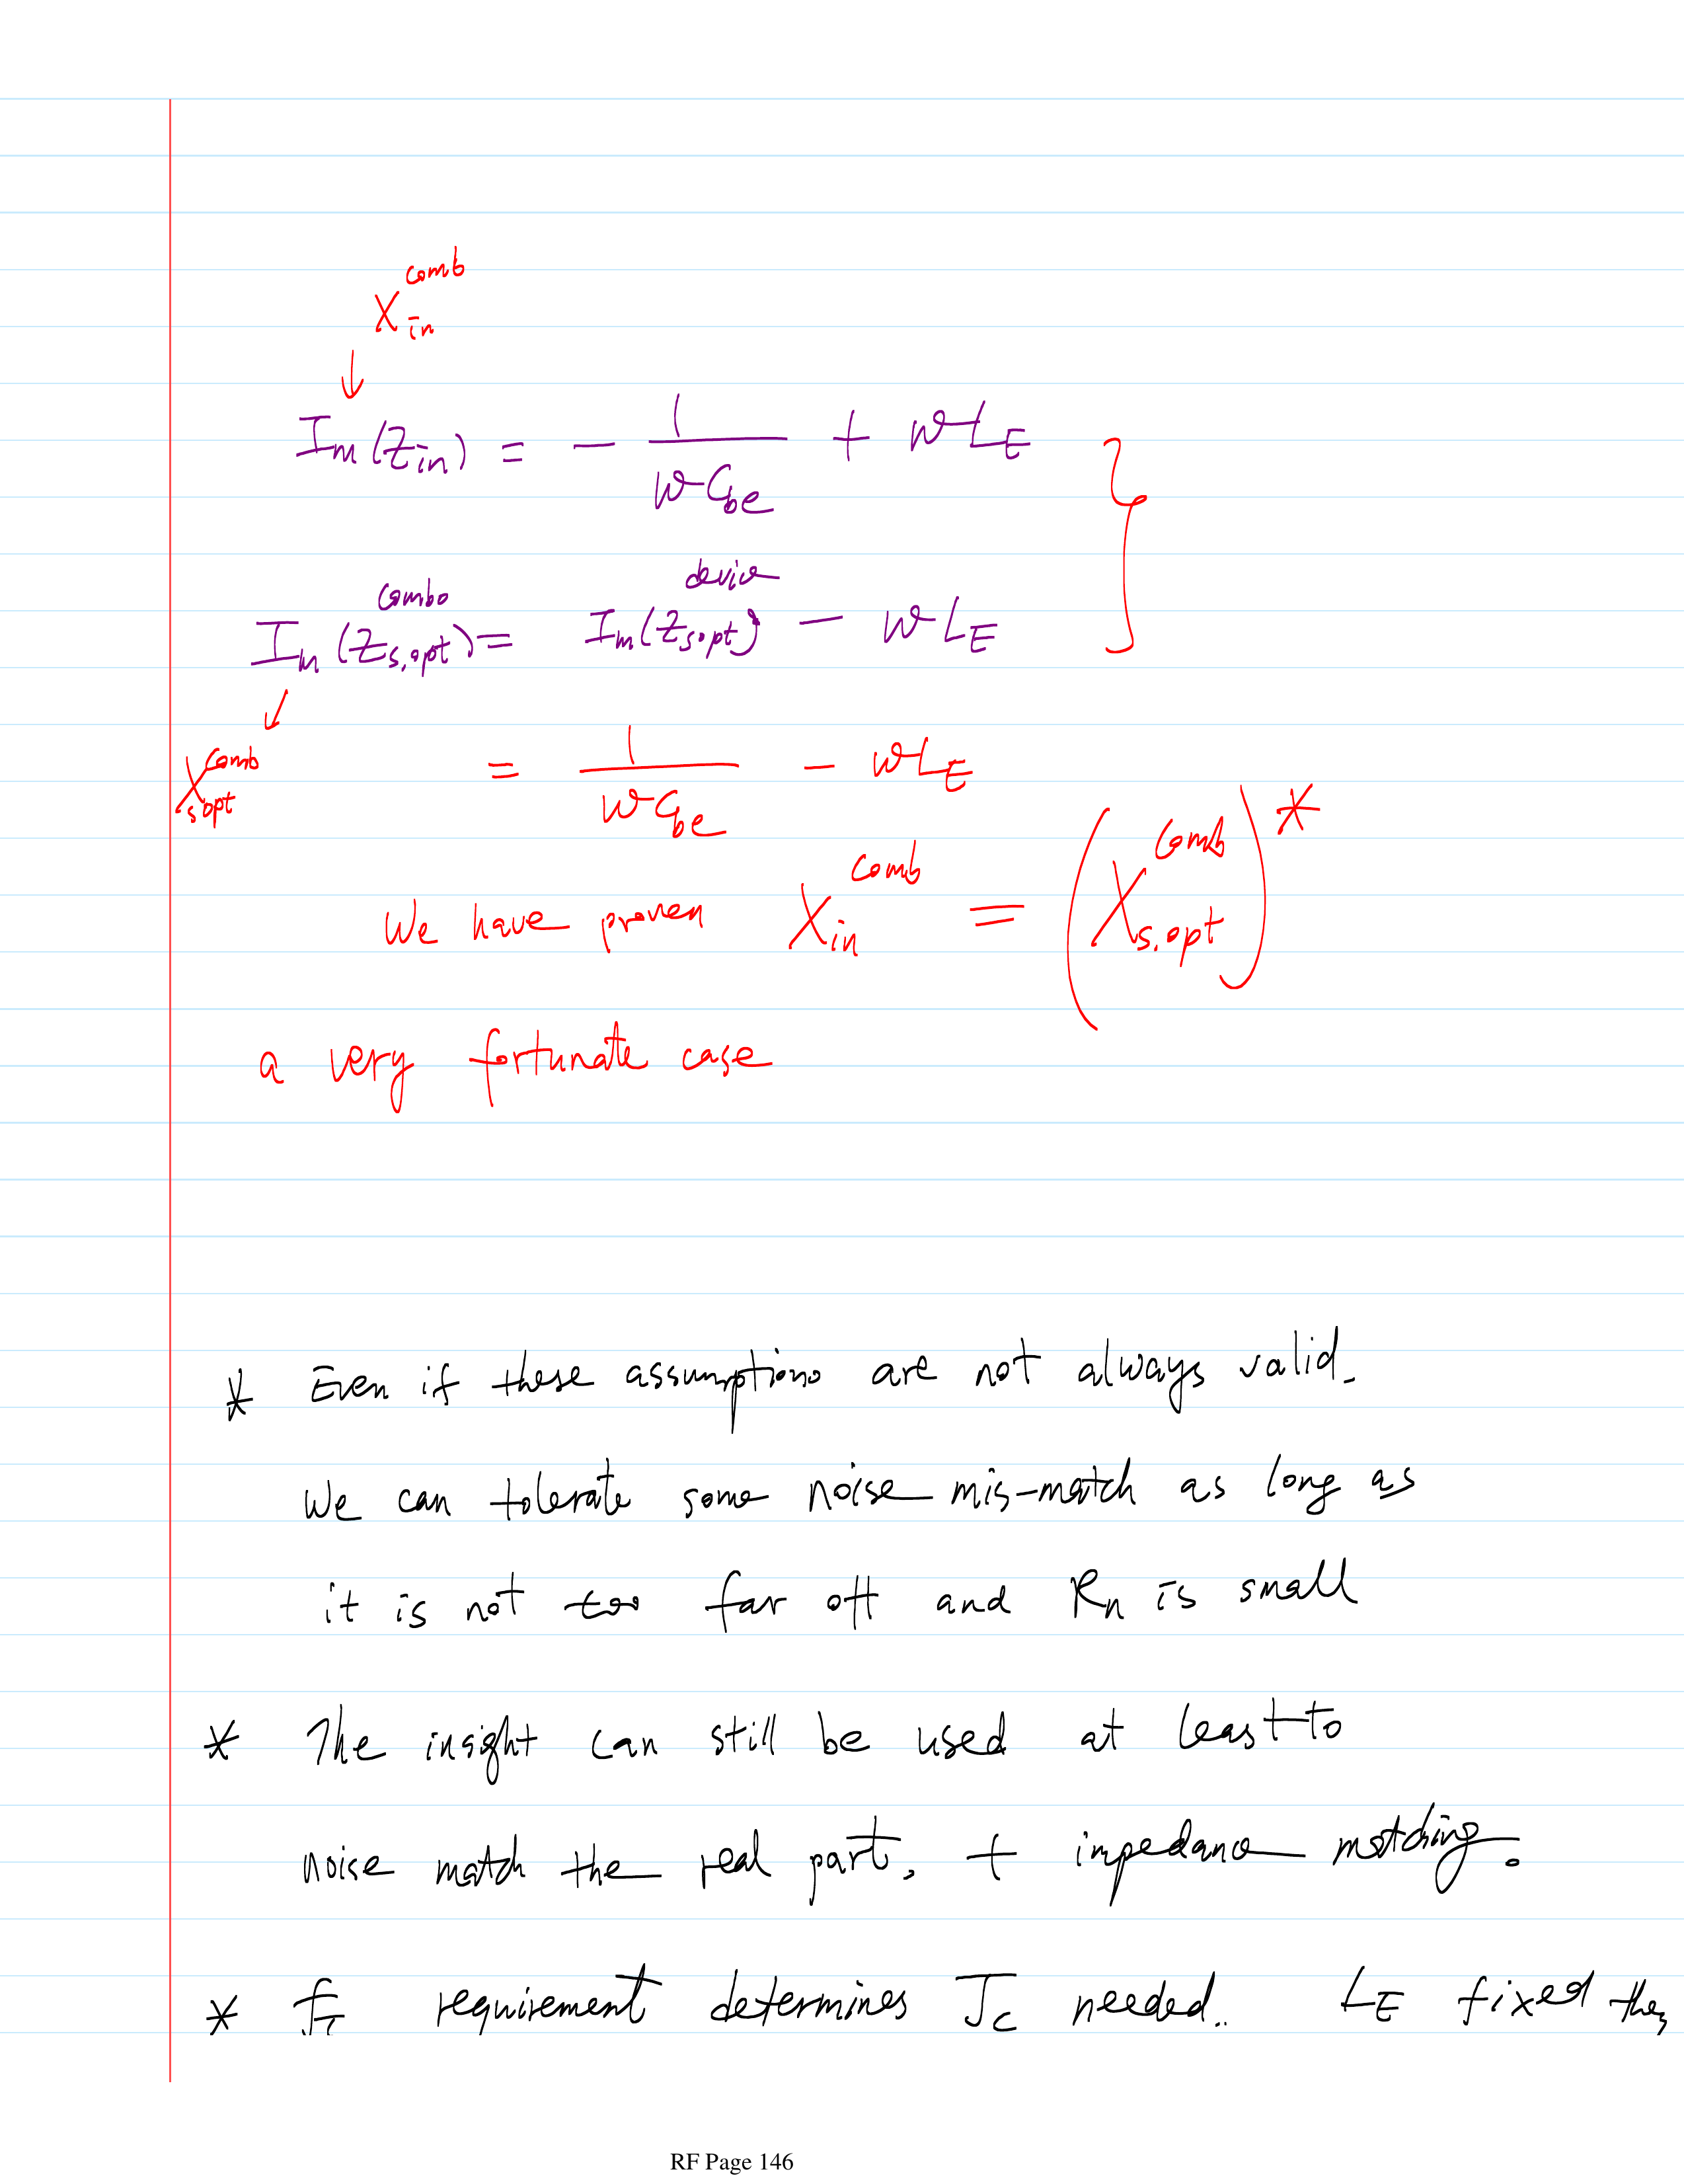 X_in^comb
↓
Im(Z_in) = - 1/(ωC_be) + ωL_E
Im(Z_s,opt)^combo = Im(Z_s,opt)^device - ωL_E
↙
X_s,opt^comb = 1/(ωC_be) - ωL_E
We have proven X_in^comb = (X_s,opt^comb)^*
a very fortunate case
* Even if these assumptions are not always valid.
We can tolerate some noise mis-match as long as
it is not too far off and R_n is small
* The insight can still be used at least to
noise match the real part, + impedance matching.
* f_T requirement determines J_C needed.. L_E fixed then
RF Page 146